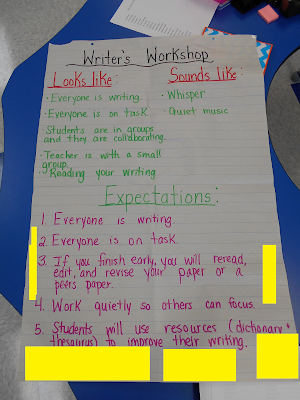 Writer's Workshop
Looks like:
· Everyone is writing.
· Everyone is on task
Students are in groups
and they are collaborating.
· Teacher is with a small
group.
· Reading your writing
Sounds like:
· Whisper
· Quiet music
Expectations:
1. Everyone is writing.
2. Everyone is on task.
3. If you finish early, you will reread,
edit, and revise your paper or a
peers paper.
4. Work quietly so others can focus.
5. Students will use resources (dictionary +
thesaurus) to improve their writing.